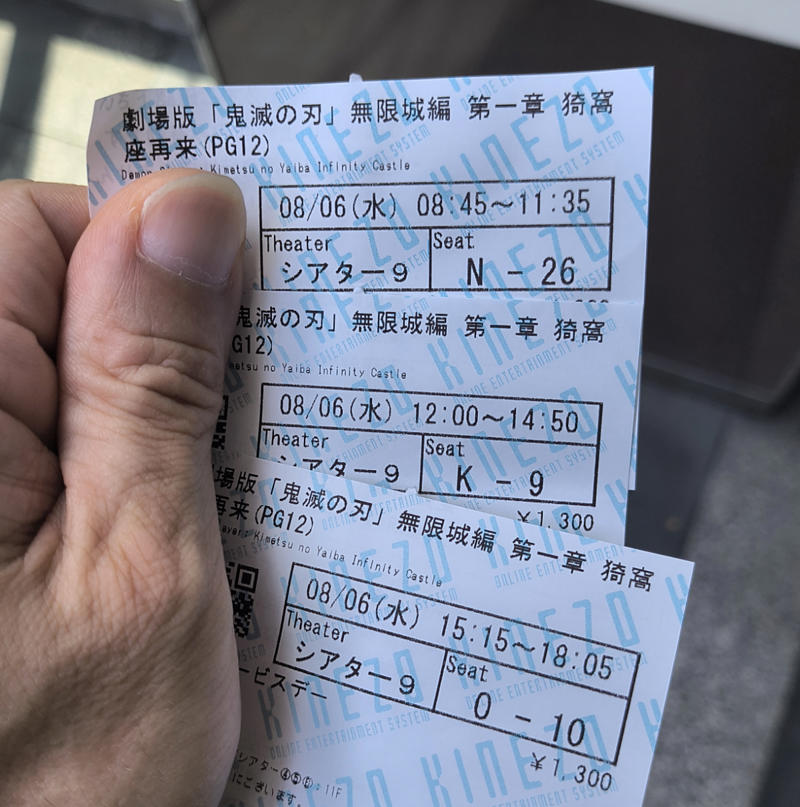 劇場版「鬼滅の刃」無限城編 第一章 猗窩
座再来(PG12)
Kimetsu no Yaiba Infinity Castle
08/06(水) 08:45～11:35
Theater
シアター9
Seat
N - 26
鬼滅の刃」無限城編 第一章 猗窩
G12)
metsu no Yaiba Infinity Castle
08/06(水) 12:00～14:50
Theater
シアター9
Seat
K - 9
￥1,300
場版「鬼滅の刃」無限城編 第一章 猗窩
再来(PG12)
ayer: Kimetsu no Yaiba Infinity Castle
08/06(水) 15:15～18:05
Theater
シアター9
Seat
O - 10
ービスデー
￥1,300
シアター④⑤⑥:11F
にございます
KINEZO
ONLINE ENTERTAINMENT SYSTEM